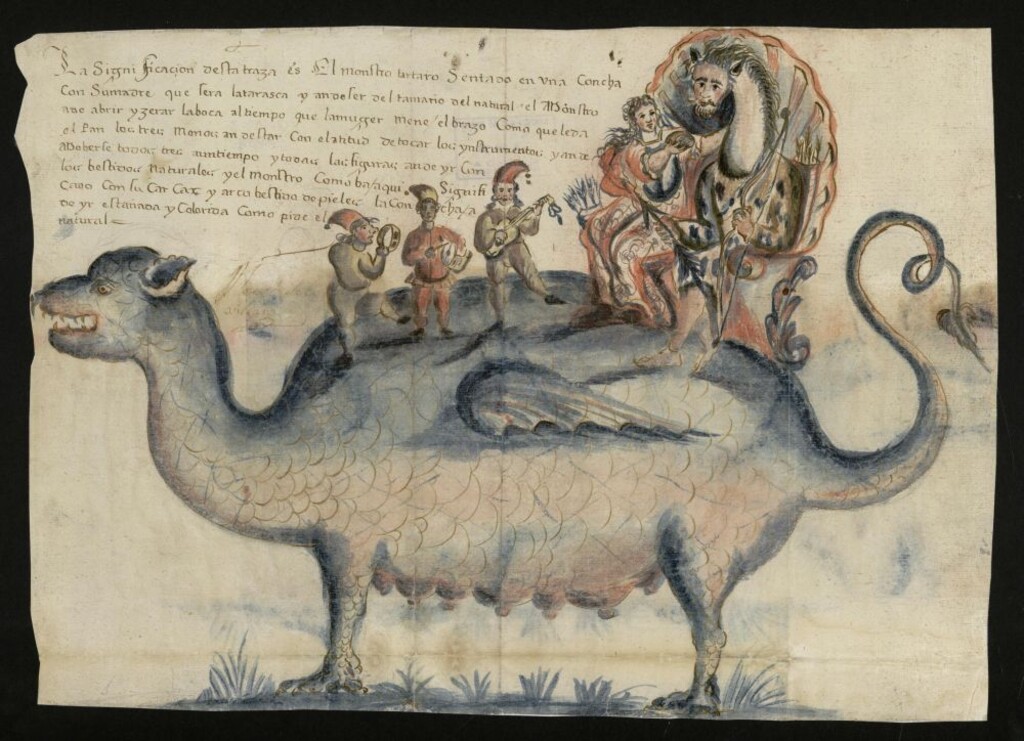 La Signi ficacion desta traza es El monstro tartaro Sentado en vna Concha
Con Sumadre que sera latarasca y andeser del tamaño del natural el Mönstro
ade abrir yzerar laboca al tiempo que lamuger mene el brazo Como que leda
el Pan los tres Monos an de star Con elatitud de tocar los ynstrumentos y an de
Moberse todos tres auntiempo y todas las figuras an de yr Con
los bestidos Naturales y el monstro Como ba aqui Signifi
Cado Con su Car Cax y arco bestido de pieles la Con cha a
de yr estañada y Colorida Como pide el
natural